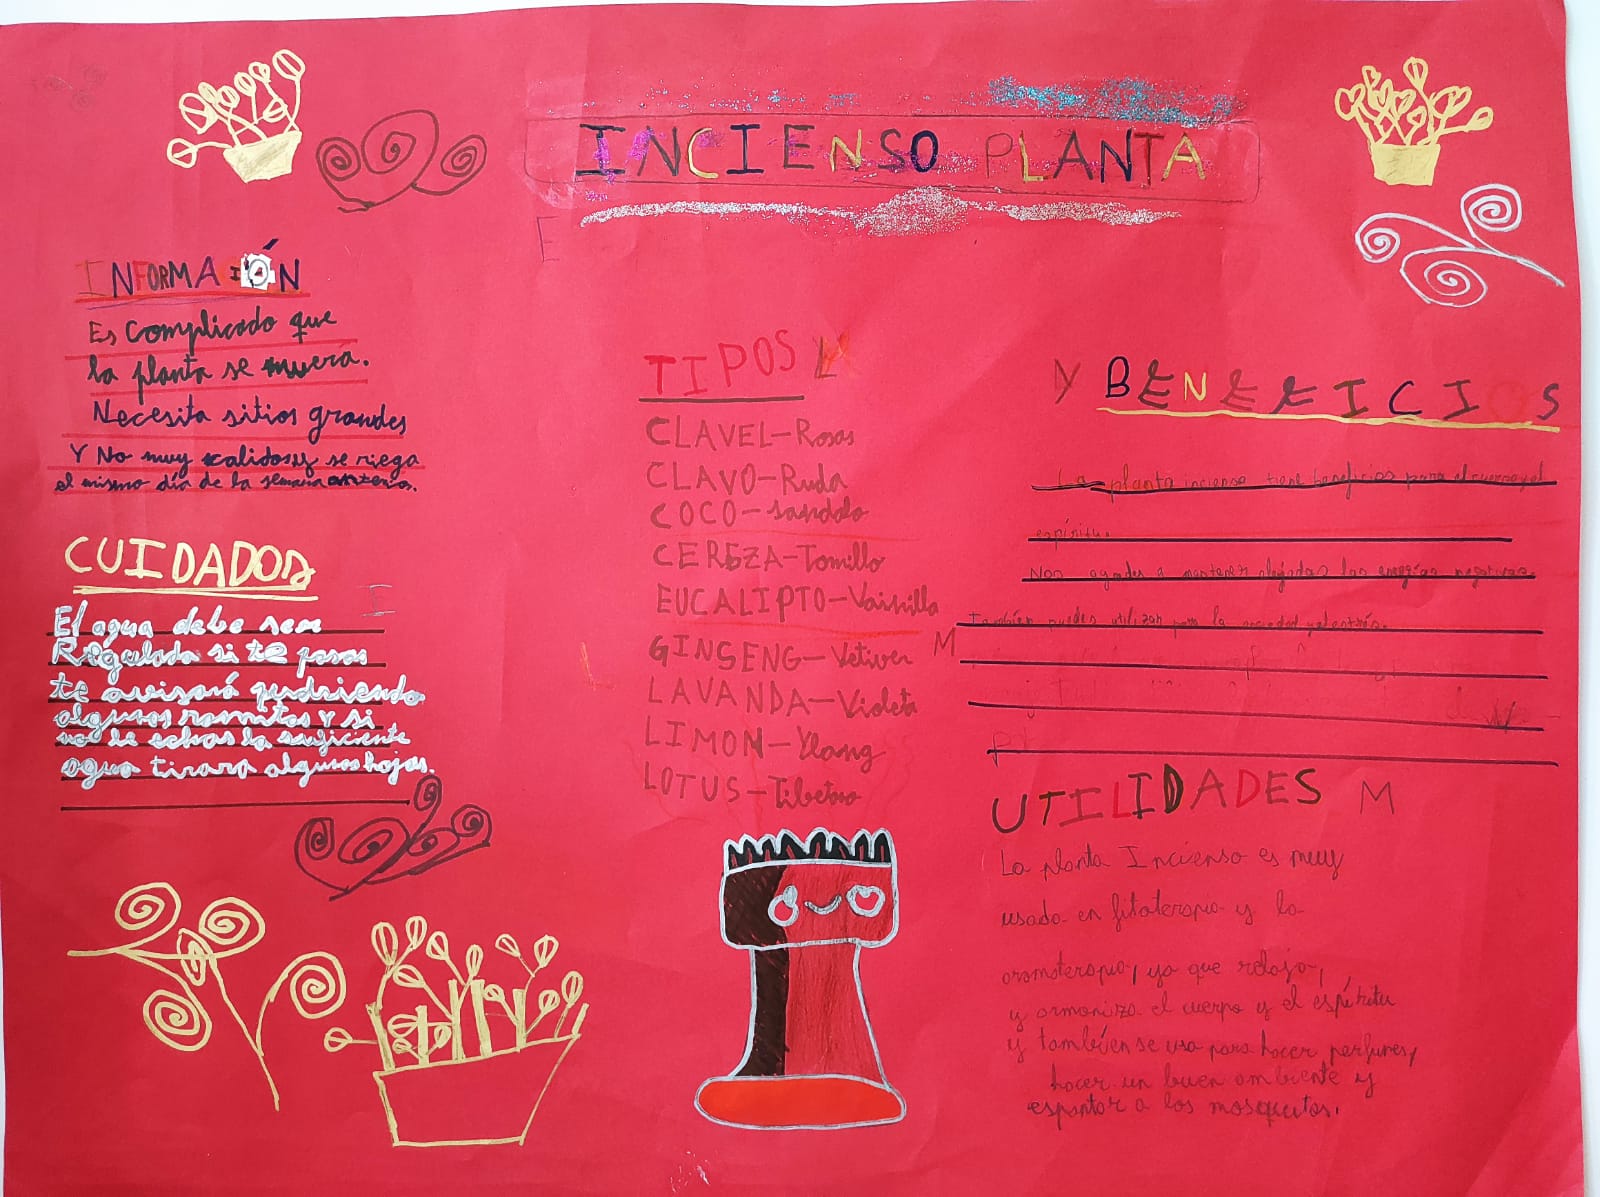 INCIENSO PLANTA
E
INFORMACIÓN
Es complicado que
la planta se muera.
Necesita sitios grandes
Y No muy calidos y se riega
el mismo día de la semana
CUIDADOS
El agua debe ser
Regulada si te pasas
te avisará pudriendo
algunos ramitos y si
no le echas la suficiente
agua tirara algunas hojas.
TIPOS
CLAVEL-Rosas
CLAVO-Ruda
COCO-Sandalo
CEREZA-Tomillo
EUCALIPTO-Vainilla
GINSENG-Vetiver
LAVANDA-Violeta
LIMON-Ylang
LOTUS-Tibetano
Y BENEFICIOS
La planta incienso tiene beneficios para el cuerpo y el
espíritu.
Nos ayuda a mantener alejadas las energías negativas.
También puedes utilizar para la ansiedad y el estrés.
M
UTILIDADES M
La planta Incienso es muy
usada en fitoterapia y la
aromaterapia, ya que relaja,
y armoniza el cuerpo y el espíritu
y también se usa para hacer perfumes,
hacer un buen ambiente y
espantar a los mosquitos.